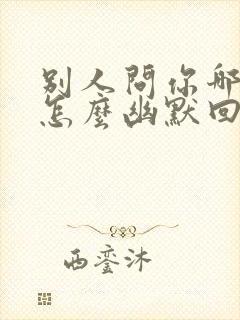 别人問你哪
怎麼幽默回
西銮沐